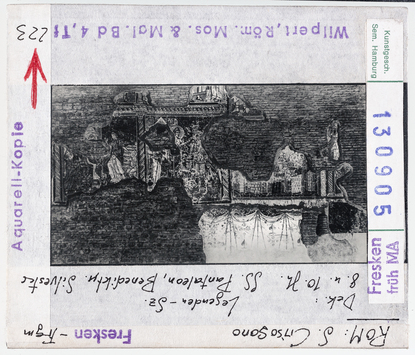 Wilpert, Röm. Mos. & Mal. Bd 4, Tf
223
Kunstgesch.
Sem. Hamburg
130905
Fresken
früh MA
Aquarell-Kopie
ROM: S. Crisogono
Dek.:
8. u. 10. Jh.
Legenden-Sz.
SS. Pantaleon, Benedikt u. Silvester
Fresken - Frgm